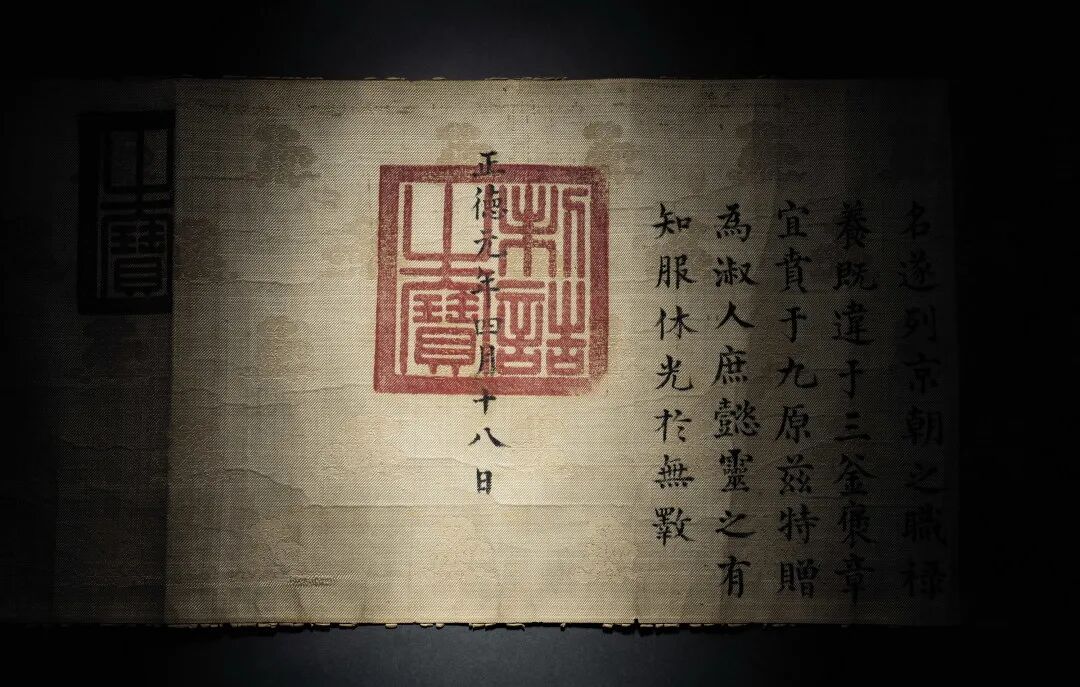 名遂列京朝之職禄
養既違于三釜褒章
宜賁于九原兹特贈
為淑人庶懿靈之有
知服休光於無斁
正德元年四月十八日
制誥
之寶
之寶